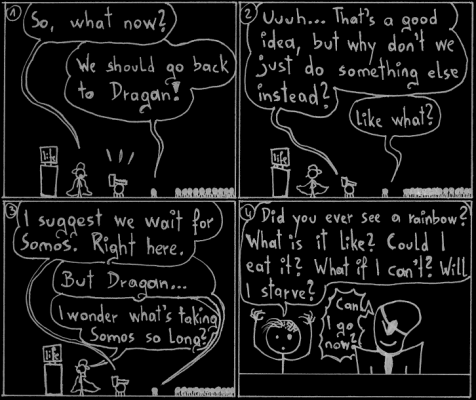 1
So, what now?
We should go back
to Dragan!
life
2
Uuuh... That's a good
idea, but why don't we
just do something else
instead?
Like what?
life
3
I suggest we wait for
Somos. Right here.
But Dragan...
I wonder what's taking
Somos so Long?
life
4
Did you ever see a rainbow?
What is it like? Could I
eat it? What if I can't? Will
I starve?
Can
I go
now?